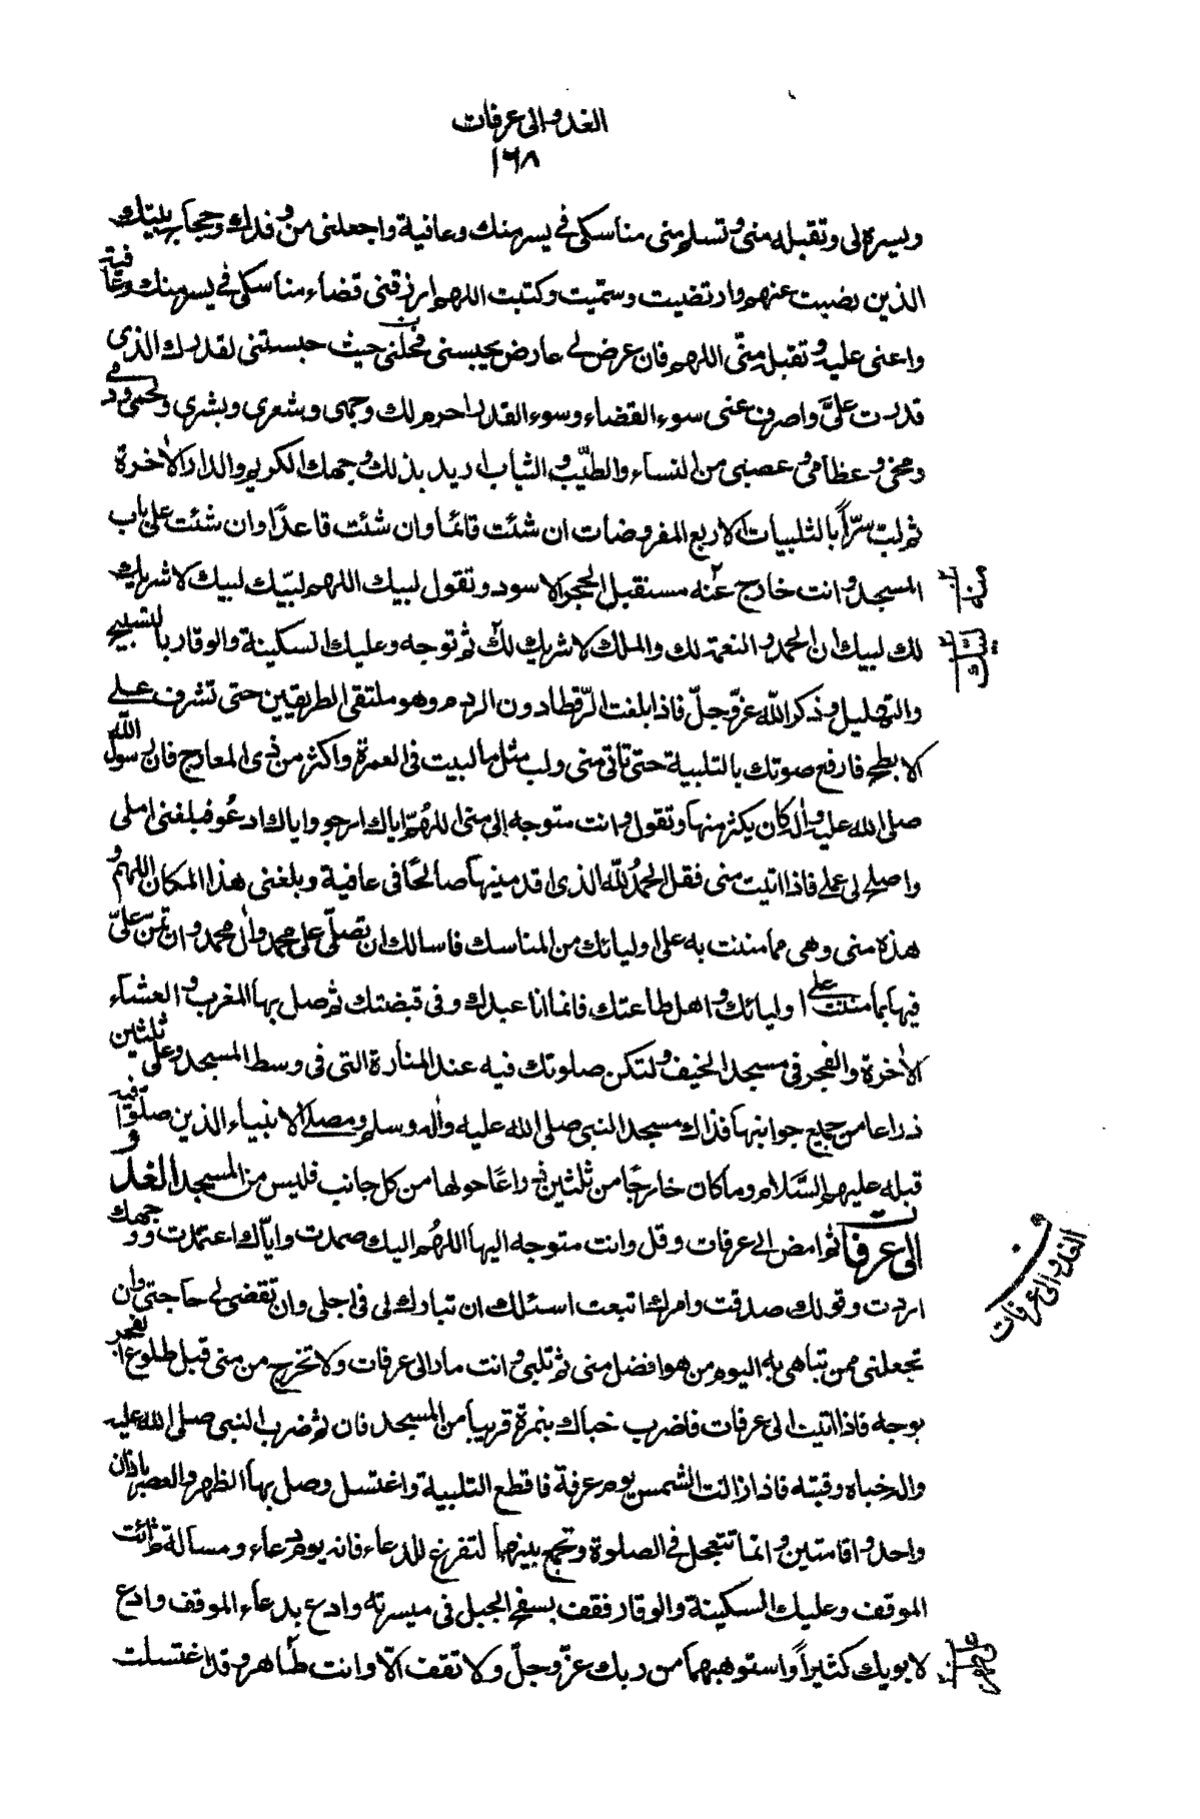 الغدو الى عرفات
١٦٨
ويسره لى وتقبله منى وتسلم منى مناسكى فى يسر منك وعافية واجعلنى من وفدك وحجاج بيتك
الذين رضيت عنهم وارتضيت وسميت وكتبت اللهم ارزقنى قضاء مناسكى فى يسر منك وعافية
واعنى عليه وتقبل منّى اللهم فان عرض لى عارض يحبسنى فحلنى حيث حبستنى لقدرك الذى
قدرت علىّ واصرف عنى سوء القضاء وسوء القدر احرم لك وجهى وشعرى وبشرى ولحمى ودمى
ومخى وعظامى وعصبى من النساء والطيّب والثياب اريد بذلك وجهك الكريم والدار الاخرة
ثم لب سرّاً بالتلبيات الاربع المفروضات ان شئت قائما وان شئت قاعدًا وان شئت على باب
المسجد وانت خارج عنه مستقبل الحجر الاسود وتقول لبيك اللهم لبيّك لبيك لا شريك
لك لبيك ان الحمد والنعمة لك والملك لا شريك لك ثم توجه وعليك السكينة والوقار بالتسبيح
والتهليل وذكر الله عزّ وجلّ فاذا بلغت الرّقطا دون الردم وهو ملتقى الطريقين حتى تشرف على
الابطح فارفع صوتك بالتلبية حتى تاتى منى ولب مثل ما لبيت فى العمرة واكثر من ذى المعارج فان رسول الله
صلى الله عليه واله كان يكثر منها وتقول وانت متوجه الى منى اللهُمّ اياك ارجو واياك ادعُو فبلغنى املى
واصلح لى عملى فاذا اتيت منى فقل الحمدُ لله الذى اقدمنيها صالحًا فى عافية وبلغنى هذا المكان اللهم و
هذه منى وهى مما مننت به على اوليائك من المناسك فاسالك ان تصلّى على محمد وال محمد وان تمنّ علىّ
فيها بما مننت على اوليائك واهل طاعتك فانما انا عبدك وفى قبضتك ثم صل بها المغرب والعشاء
الاخرة والفجر فى مسجد الخيف ولتكن صلوتك فيه عند المنارة التى فى وسط المسجد وعلى ثلثين
ذراعا من جميع جوانبها فذاك مسجد النبى صلى الله عليه واله وسلم ومصلى الانبياء الذين صلوا فيه
قبله عليهم السَّلام وما كان خارجًا من ثلثين ذراعًا حولها من كل جانب فليس من المسجد الغدو
الى عرفات ثم امض الى عرفات وقل وانت متوجه اليها اللهُم اليك صمدت واياّك اعتمدت ووجهك
اردت وقولك صدقت وامرك اتبعت اسئلك ان تبارك لى فى اجلى وان تقضى لى حاجتى وان
تجعلنى ممن تباهى به اليوم من هو افضل منى ثم تلبى وانت مار الى عرفات ولا تخرج من منى قبل طلوع الفجر
بوجه فاذا اتيت الى عرفات فاضرب خباك بنمرة قريبا من المسجد فان ثم ضرب النبى صلى الله عليه
واله خباه وقبته فاذا زالت الشمس يوم عرفة فاقطع التلبية واغتسل وصل بها الظهر والعصر باذان
واحد واقامتين وانما تتعجل فى الصلوة وتجمع بينهما لتفرغ للدعاء فانه يوم دعاء ومسالة ثم ائت
الموقف وعليك السكينة والوقار فقف بسفح الجبل فى ميسرته وادع بدعاء الموقف وادع
لابويك كثيراً واستوهبهما من ربك عزّ وجلّ ولا تقف الاّ وانت طاهر وقد اغتسلت
منها
لبيك
الغدو الى عرفات